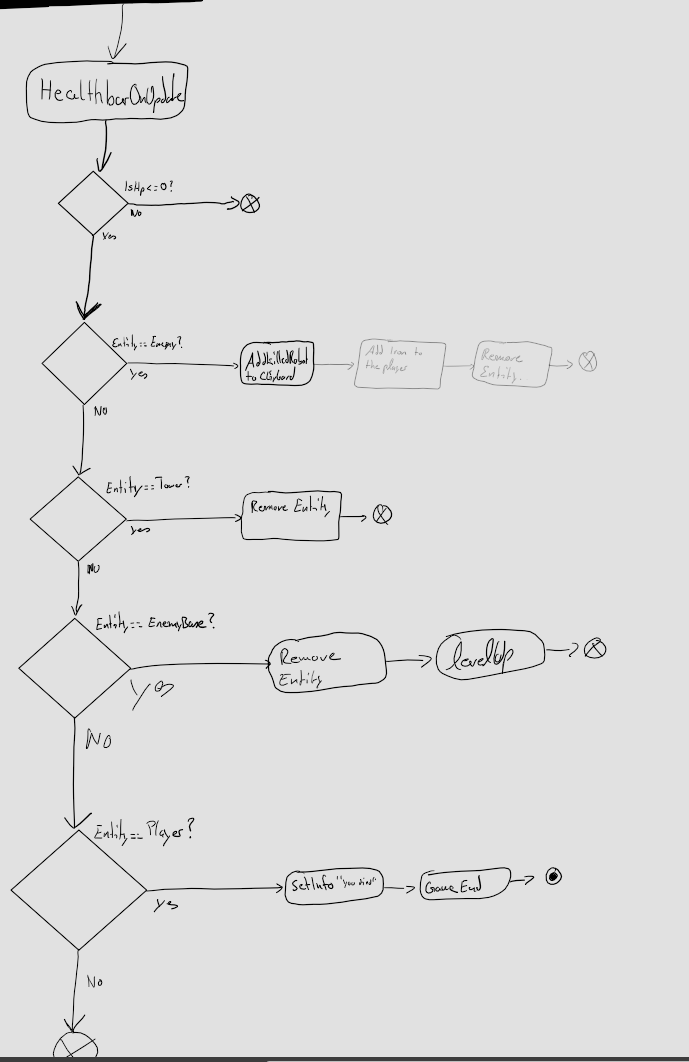 HealthbarOnUpdate
IsHp<=0?
No
Yes
Entity==Enemy?
Yes
AddKilledRobot
to Clipboard
Add Iron to
the player
Remove
Entity.
No
Entity==Tower?
Yes
Remove Entity
No
Entity==EnemyBase?
Yes
Remove
Entity
levelUp
No
Entity==Player?
Yes
SetInfo "you died"
Game End
No